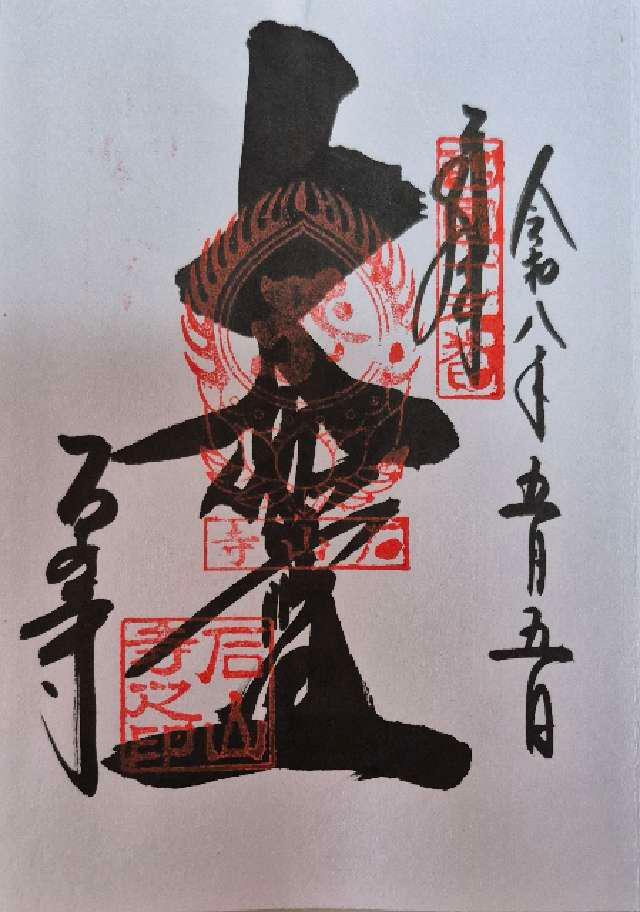 令和八年五月五日
奉拝
西國十三番
石山寺
石山寺之印
石山寺